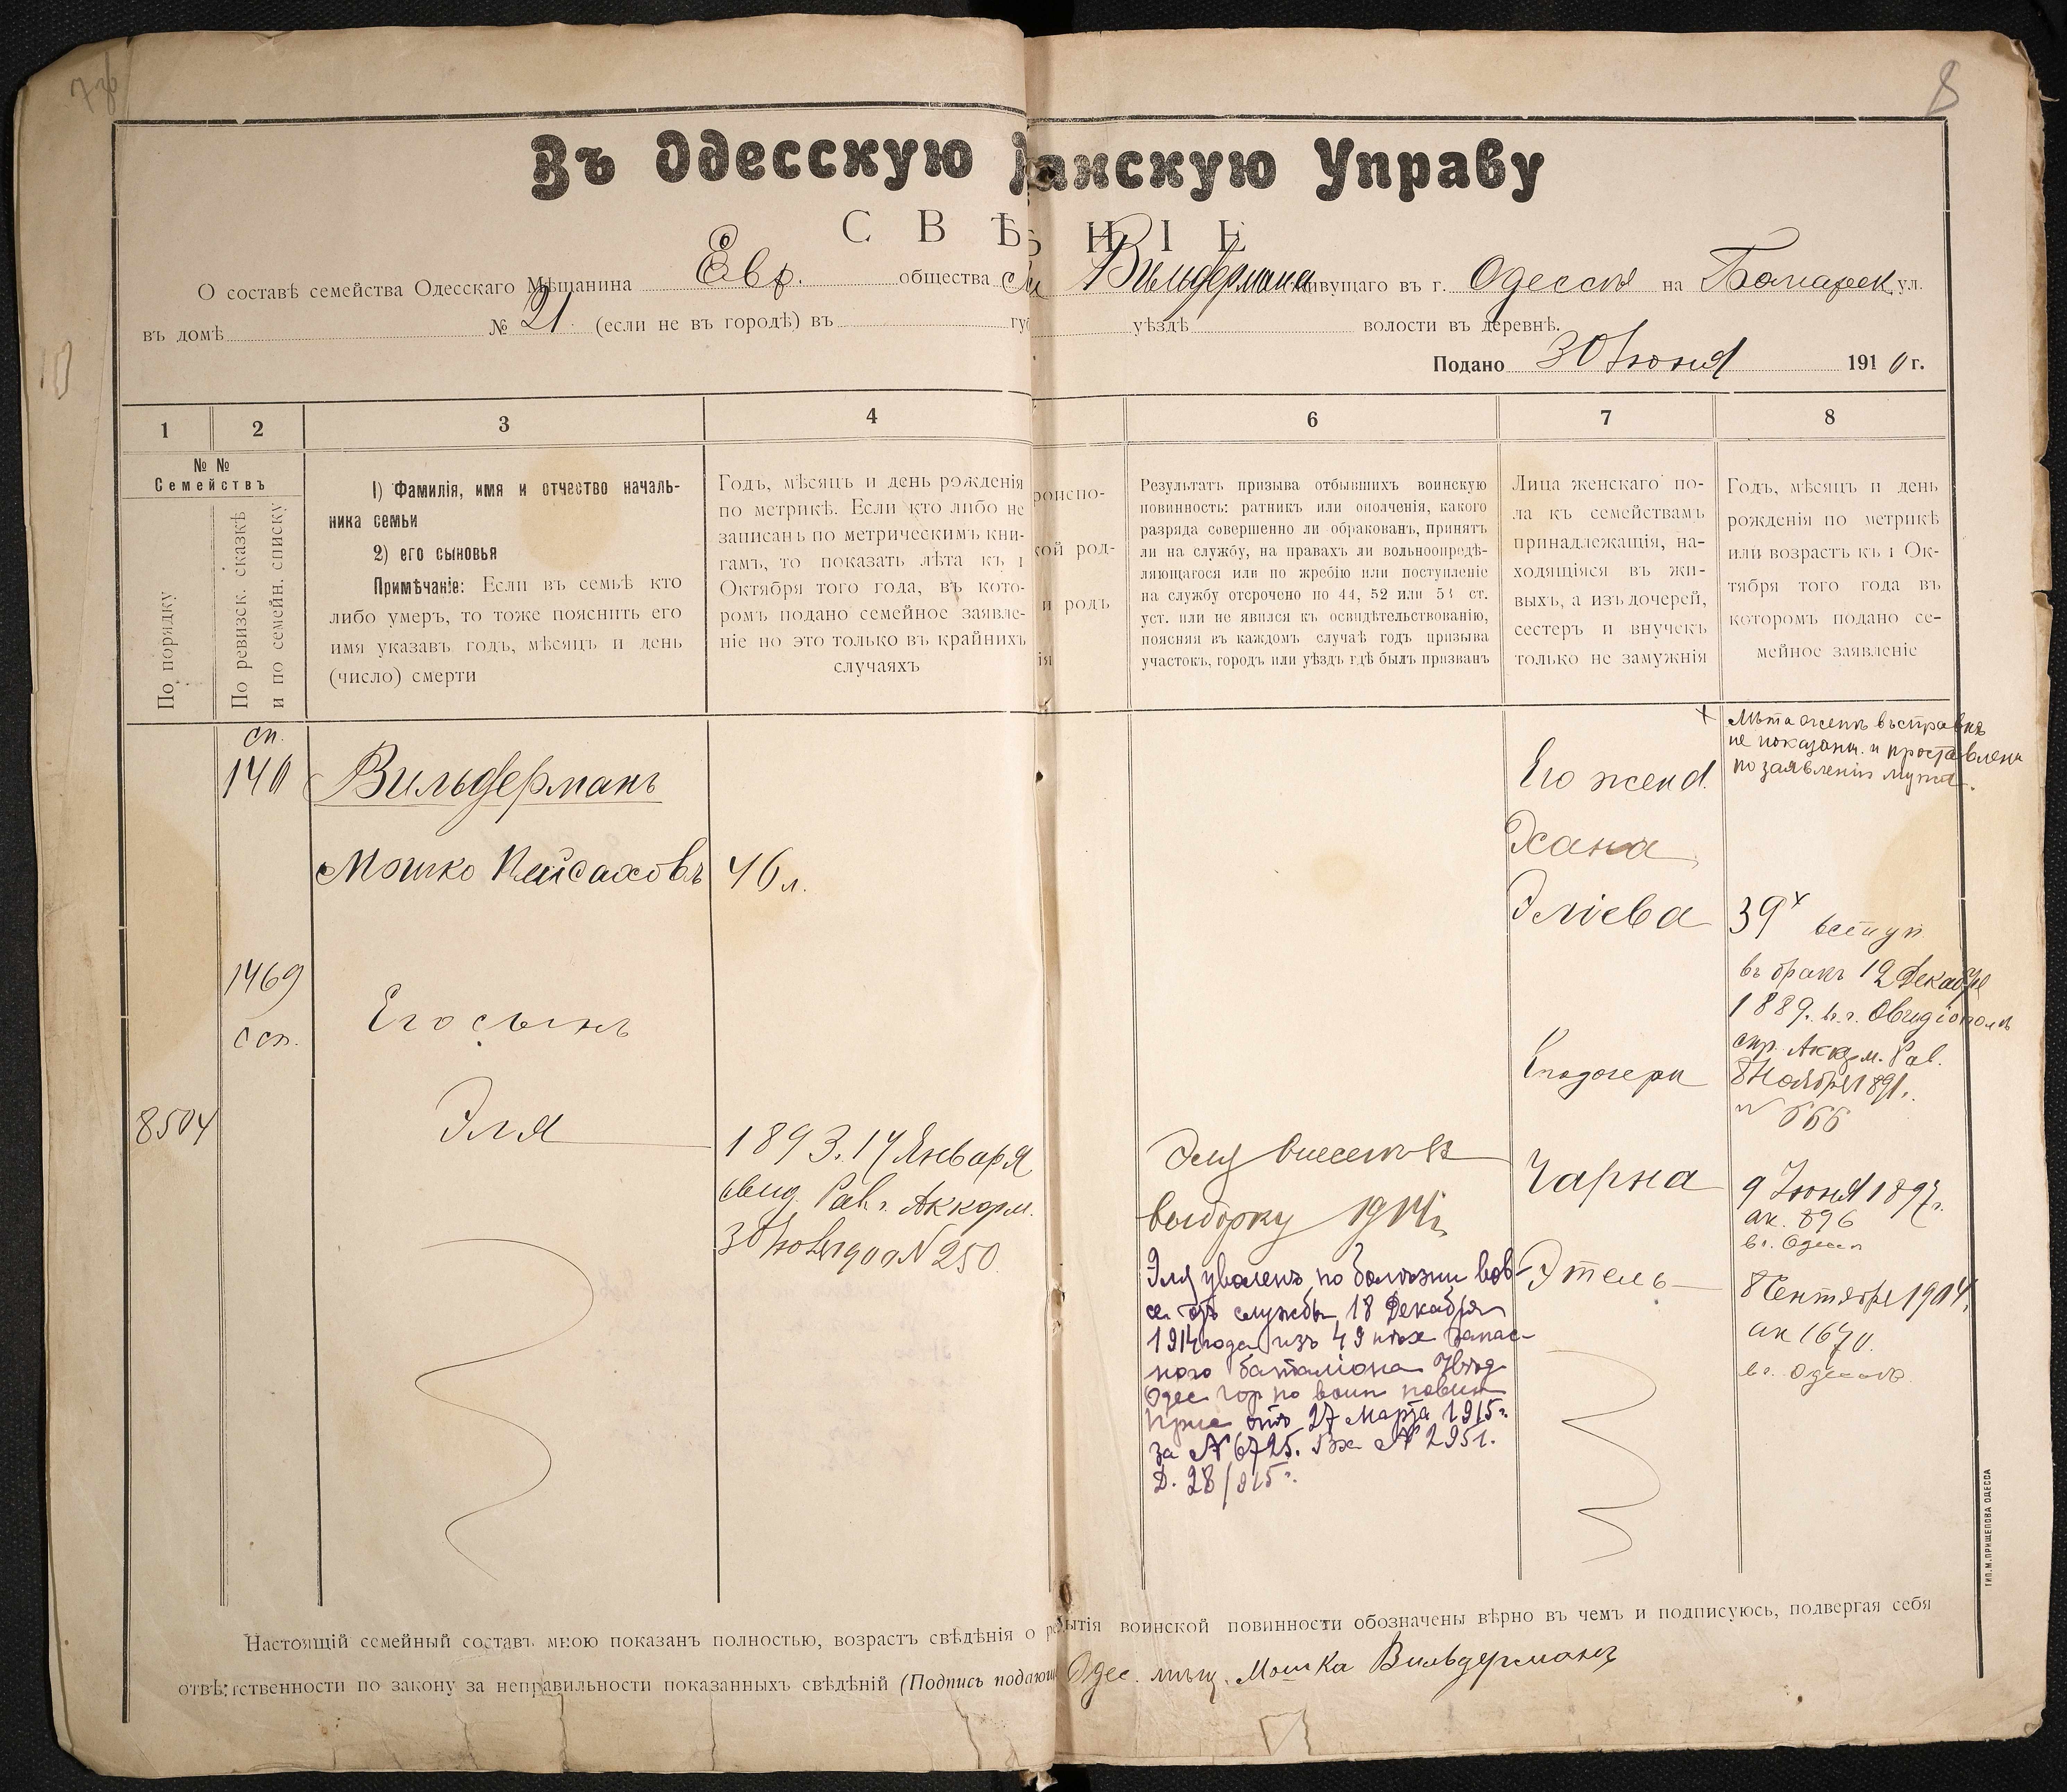 8
Въ Одесскую
анскую Управу
СВѢ
НІЕ
О составѣ семейства Одесскаго Мѣщанина Евр. общества Вильдермана живущаго въ г. Одессы на ул.
въ домѣ № 21 (если не въ городѣ) въ гу уѣздѣ волости въ деревнѣ.
Подано 30 Іюня 1910 г.
1 2 3 4 6 7 8
№ №
Семействъ
По порядку
По ревизск. сказкѣ
и по семейн. списку
1) Фамилія, имя и отчество началь-
ника семьи
2) его сыновья
Примѣчаніе: Если въ семьѣ кто
либо умеръ, то тоже пояснить его
имя указавъ годъ, мѣсяцъ и день
(число) смерти
Годъ, мѣсяцъ и день рожденія
по метрикѣ. Если кто либо не
записанъ по метрическимъ кни-
гамъ, то показать лѣта къ 1
Октября того года, въ кото-
ромъ подано семейное заявле-
ніе но это только въ крайнихъ
случаяхъ
роиспо-
кой род-
и родъ
ія
Результатъ призыва отбывшихъ воинскую
повинность: ратникъ или ополченія, какого
разряда совершенно ли обракованъ, принятъ
ли на службу, на правахъ ли вольноопредѣ-
ляющагося или по жребію или поступленіе
на службу отсрочено по 44, 52 или 53 ст.
уст. или не явился къ освидѣтельствованію,
поясняя въ каждомъ случаѣ годъ призыва
участокъ, городъ или уѣздъ гдѣ былъ призванъ
Лица женскаго по-
ла къ семействамъ
принадлежащія, на-
ходящіяся въ жи-
выхъ, а изъ дочерей,
сестеръ и внучекъ
только не замужнія
Годъ, мѣсяцъ и день
рожденія по метрикѣ
или возрастъ къ 1 Ок-
тября того года въ
которомъ подано се-
мейное заявленіе
сп.
140
Вильдерманъ
Мошко Пейсаховъ
46 л.
1469
с сп.
Его сынъ
8504
Эля
1893. 14 Января
свид. Рав. г. Аккерм.
30 Іюня 1909 N 250.
Эля внесенъ въ
выборку 1914 г.
Эля уволенъ по болѣзни вов-
се отъ службы 18 Декабря
1914 года изъ 49 пѣх запас-
ного баталіона Увѣд
Одес гор по воин повин
прис отъ 27 Марта 1915 г.
за N 6725. Вх N 2951.
Д. 28/915 г.
Его жена
Хана
Эліева
Его дочери
Чарна
Этель
х Лѣта жены въ справкѣ
не показаны и проставлены
по заявленію мужа.
39 х вступ
въ бракъ 12 Декабря
1889. въ г. Овидіополѣ
спр. Аккерм. Рав.
8 Ноября 1891 г.
N 666
9 Іюня 1897 г.
ак. 896
въ г. Одессѣ
8 Сентября 1904 г.
ак 1670.
въ г. Одессѣ
Настоящій семейный составъ мною показанъ полностью, возрастъ свѣдѣнія о бытія воинской повинности обозначены вѣрно въ чемъ и подписуюсь, подвергая себя
отвѣтственности по закону за неправильности показанныхъ свѣдѣній (Подпись подающ Одес. мѣщ. Мошка Вильдерманъ
ТИП. М. ПРИЩЕПОВА ОДЕССА